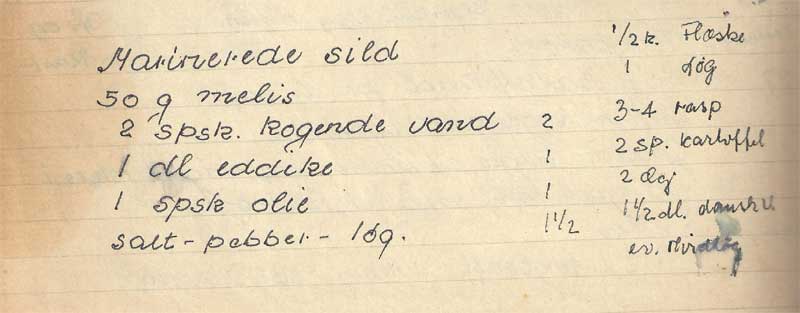 Marinerede sild
50 g melis
2 spsk. kogende vand 2
1 dl eddike 1
1 spsk olie 1
salt - pebber - løg. 1½
1/2 k. Flæske
1 Løg
3-4 rasp
2 sp. kartoffel
2 Æg
1½ dl. dansk
ev. Hvidløg